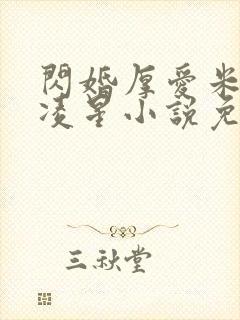 閃婚厚愛米
凌星小說免
三秋堂